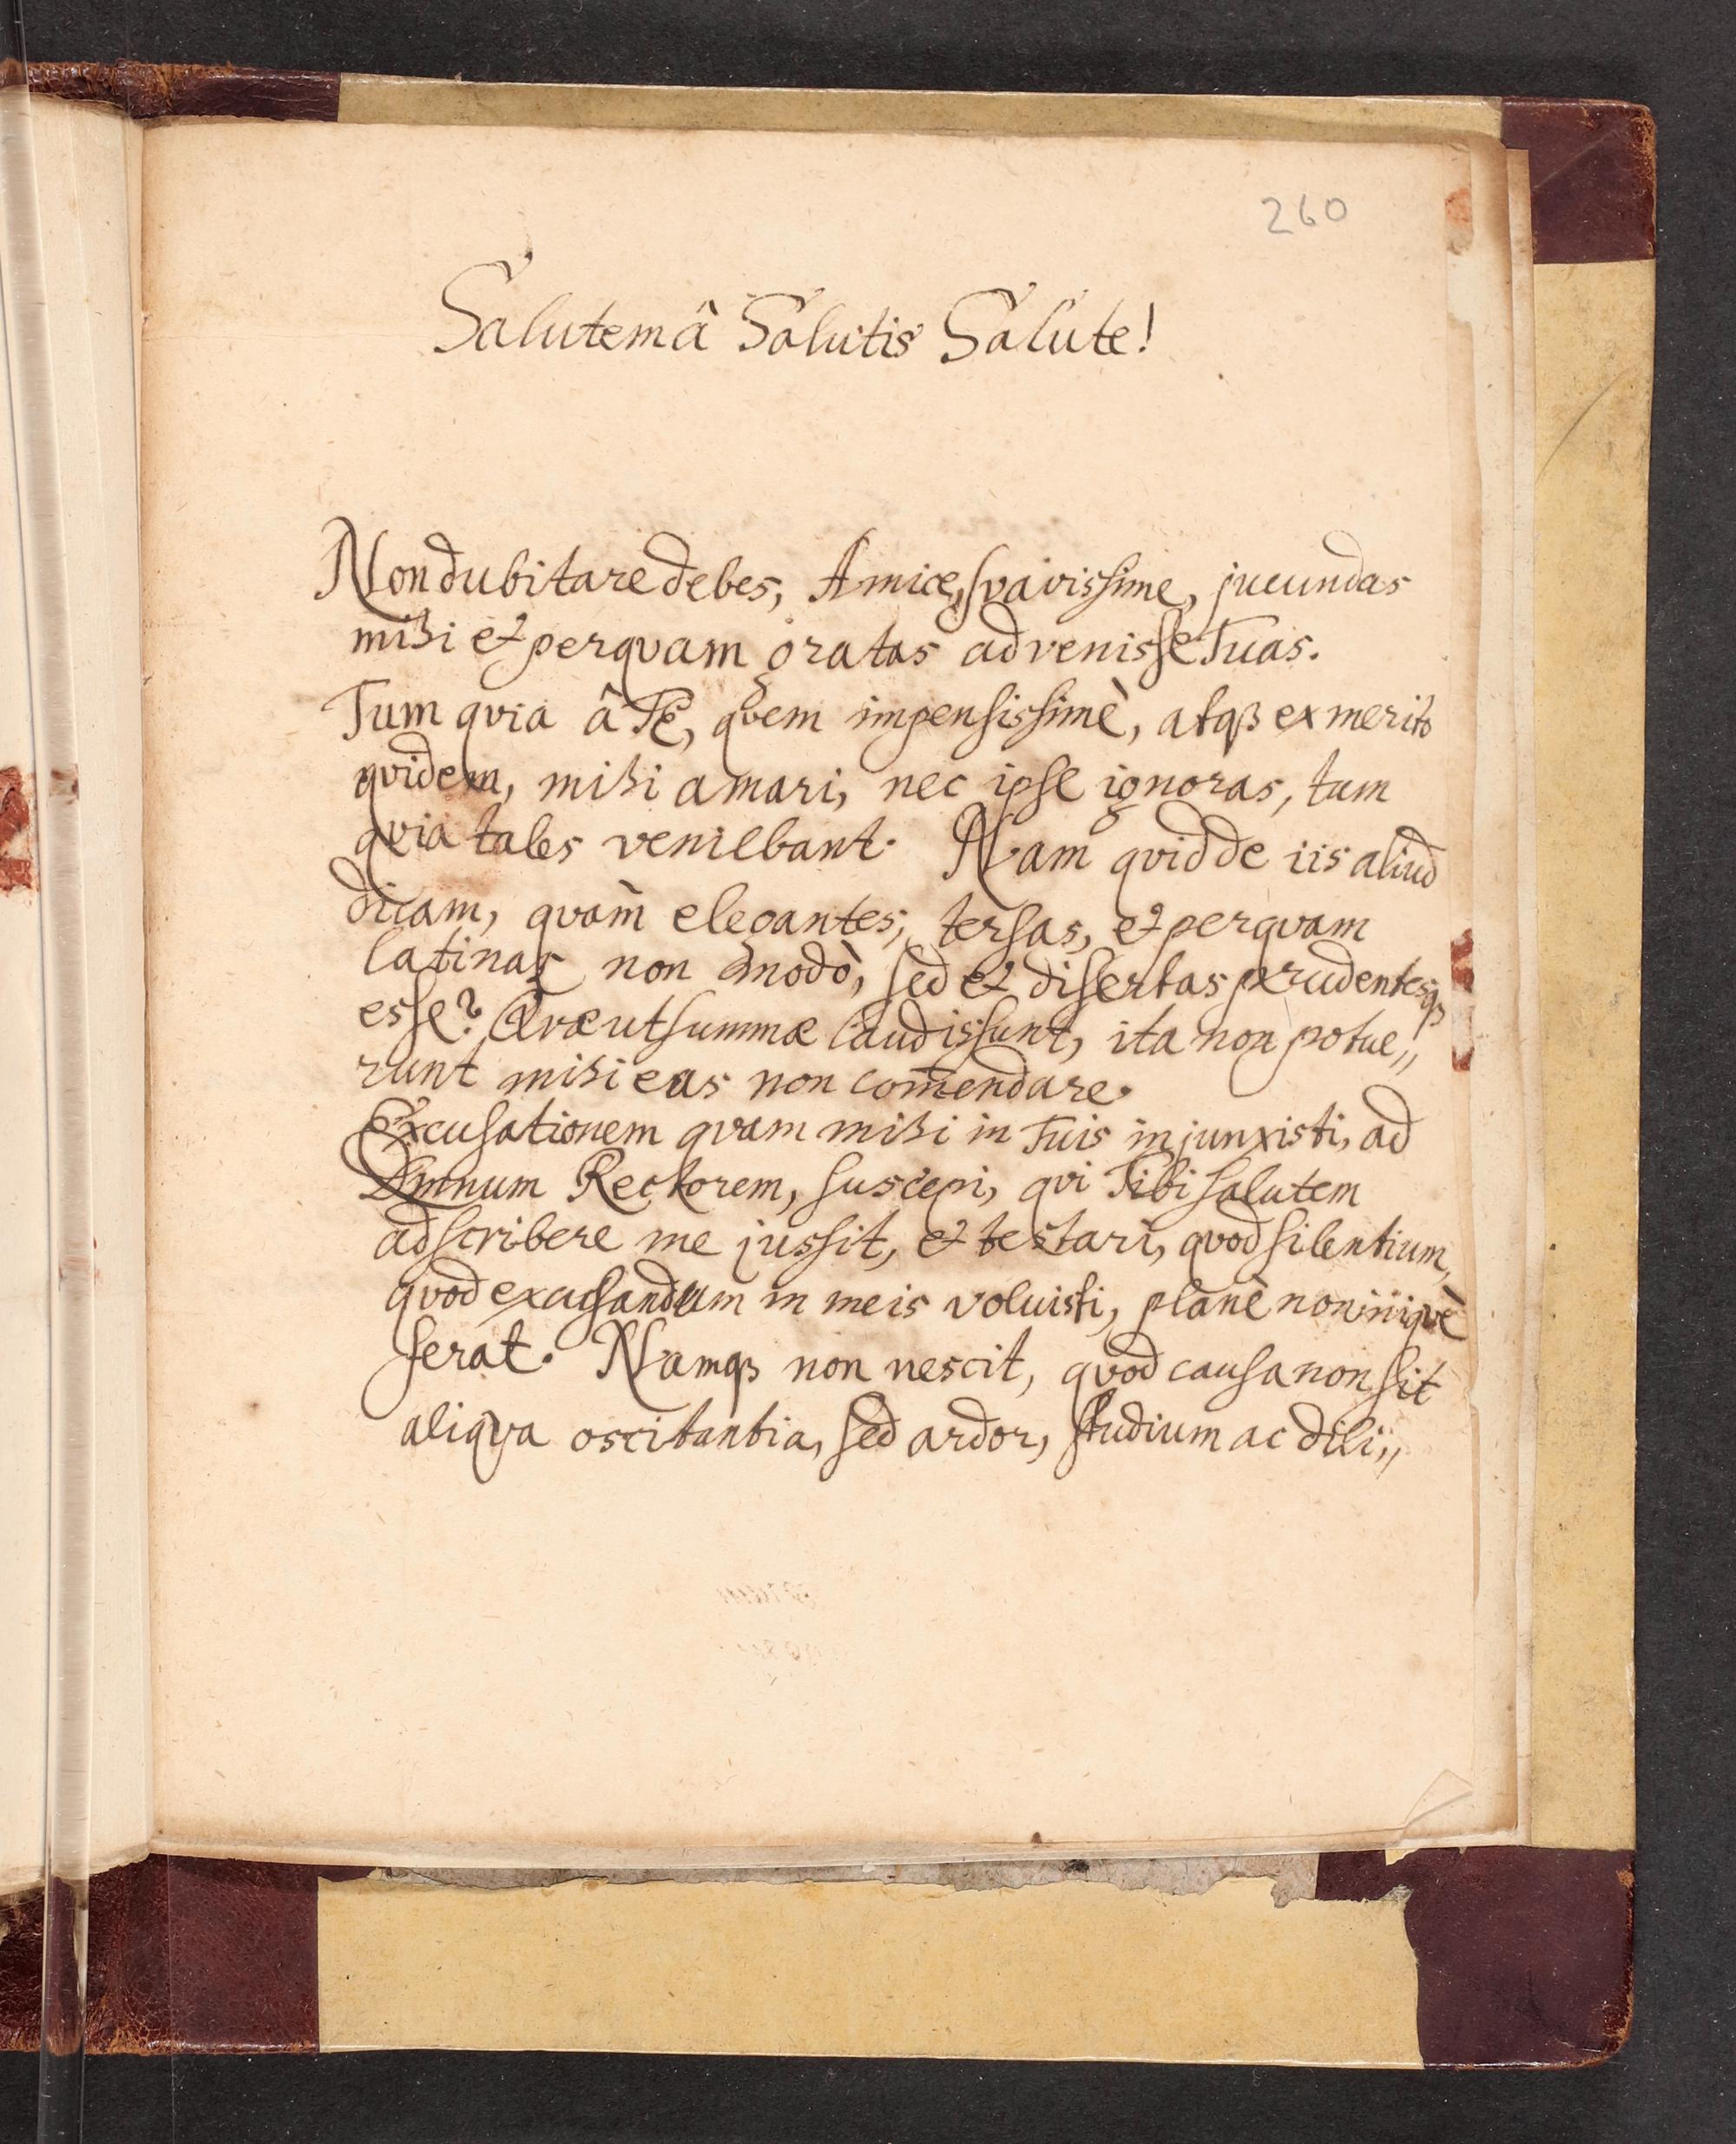 260
Salutem â Salutis Salute!
Non dubitare debes, Amice svavissime, jucundas
mihi et perqvam gratas advenisse Tuas.
Tum qvia â Te, qvem impensissimè, atqꝫ ex merito
qvidem, mihi amari, nec ipse ignoras, tum
qvia tales veniebant. Nam qvid de iis aliud
dicam, qvàm elegantes, tersas, et perqvam
latinas non modò, sed et disertas prudentesqꝫ
esse? Qvæ ut summæ laudis sunt, ita non potue„
runt mihi eas non com̃endare.
Excusationem qvam mihi in Tuis injunxisti, ad
Dmnum Rectorem, suscepi, qvi Tibi salutem
adscribere me jussit, et testari, qvod silentium,
qvod excusandum in meis voluisti, planè non iniqvè
ferat. Namqꝫ non nescit, qvod causa non sit
aliqva oscitantia, sed ardor, studium ac dili„